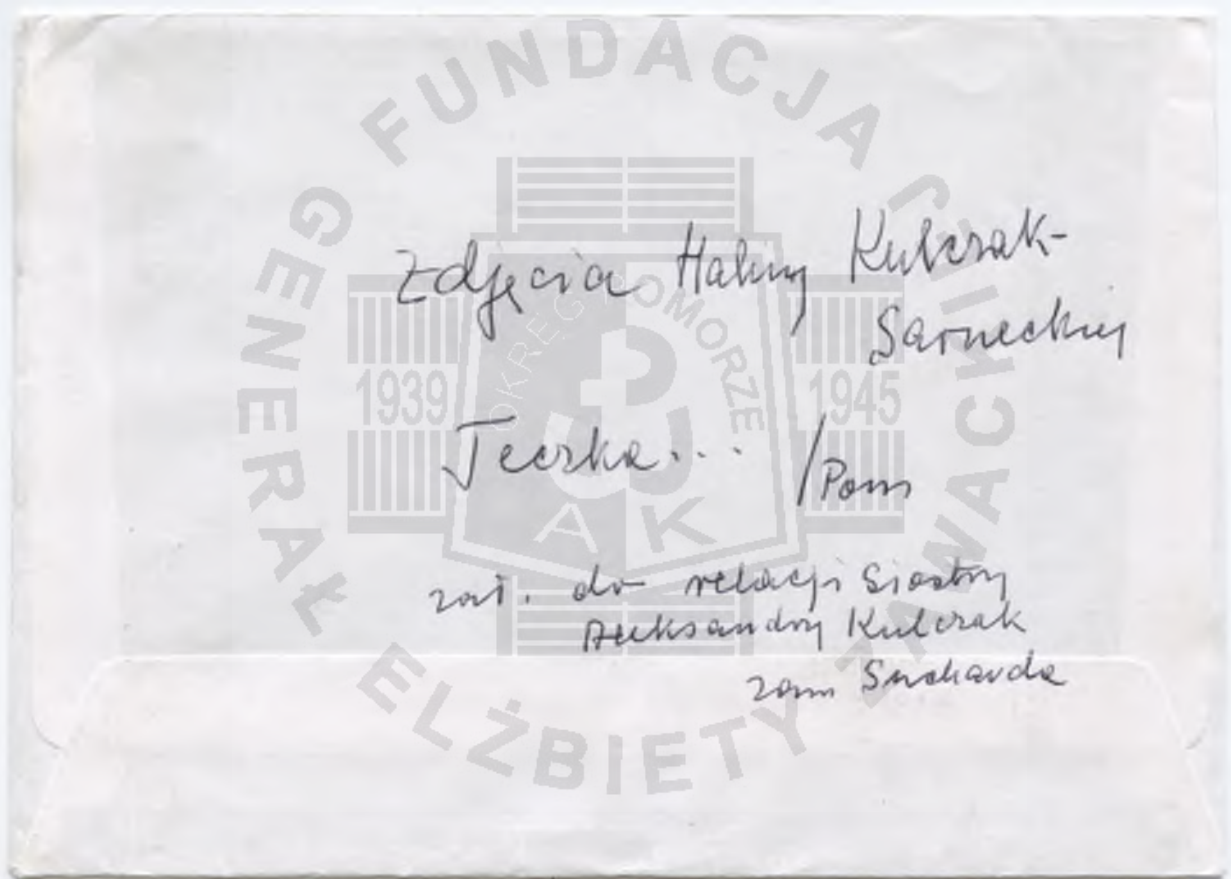 FUNDACJA
GENERAŁ ELŻBIETY ZAWACKIEJ
OKRĘG POMORZE
1939
1945
AK
Zdjęcia Haliny Kulczak-
Sarneckiej
Teczka... /Pom
zał. do relacji siostry
Aleksandry Kulczak
zam Sucharda